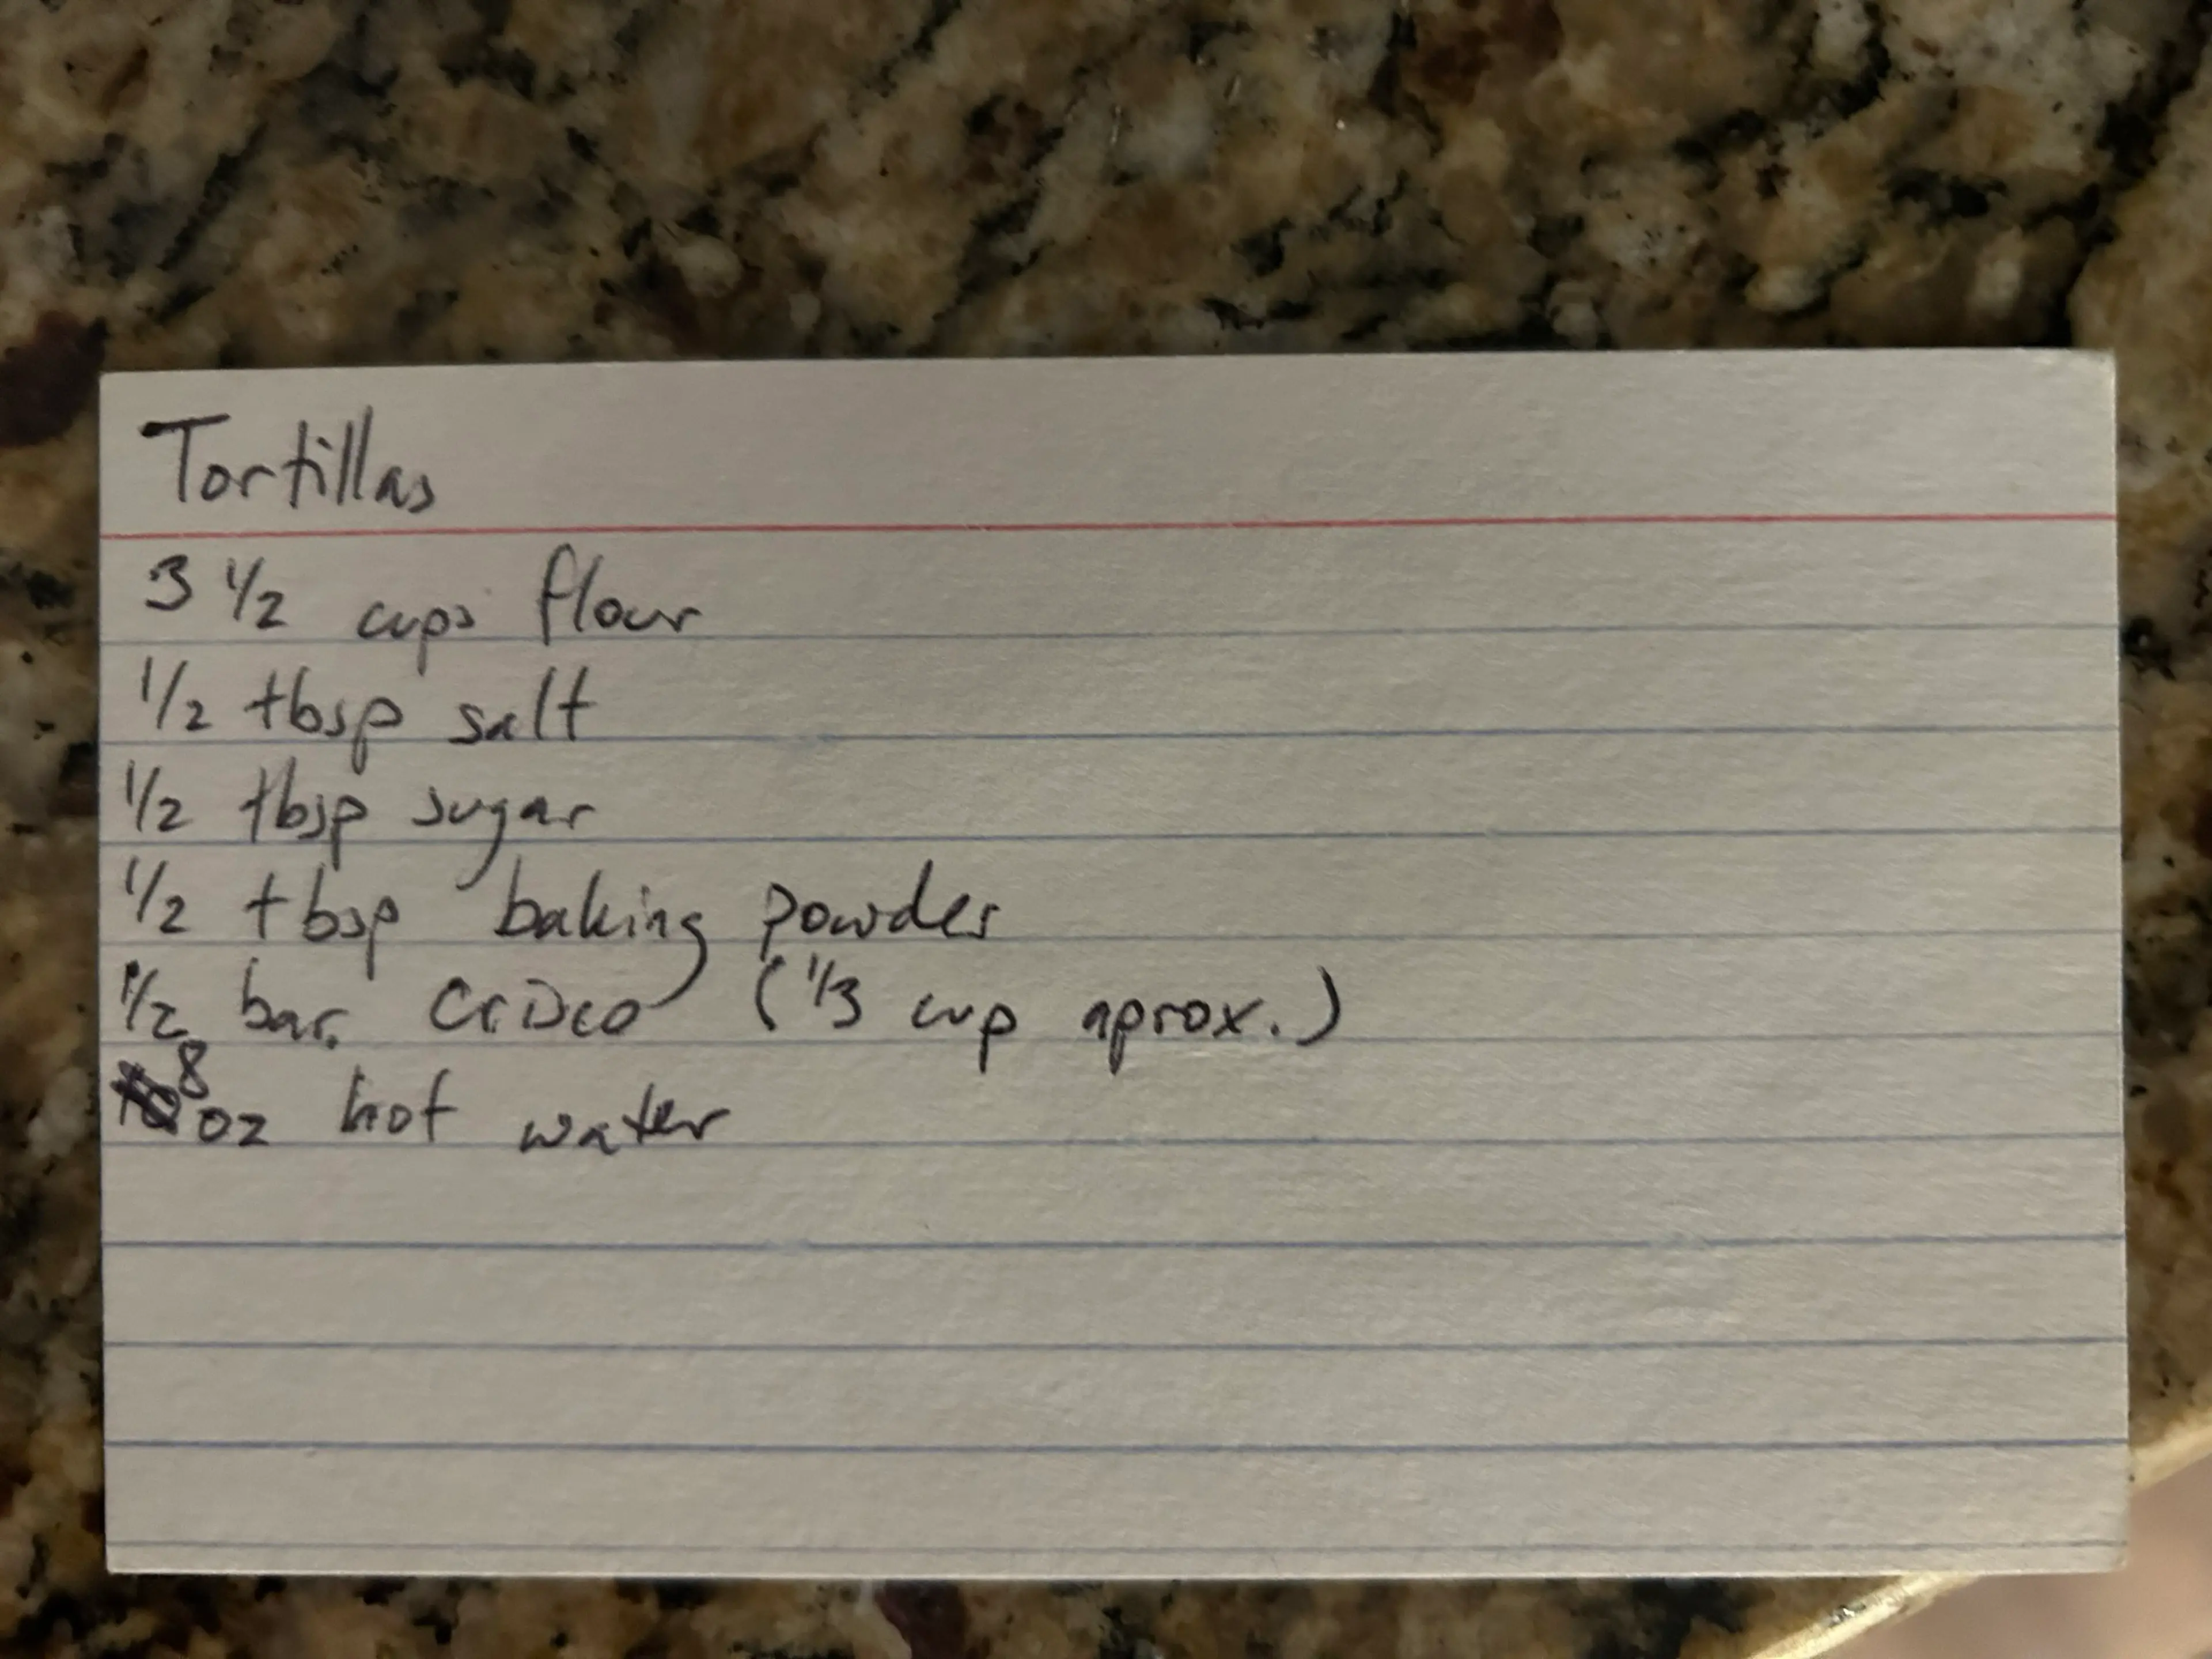 Tortillas
3 1/2 cups flour
1/2 tbsp salt
1/2 tbsp sugar
1/2 tbsp baking powder
1/2 bar. Crisco (1/3 cup aprox.)
8 oz hot water